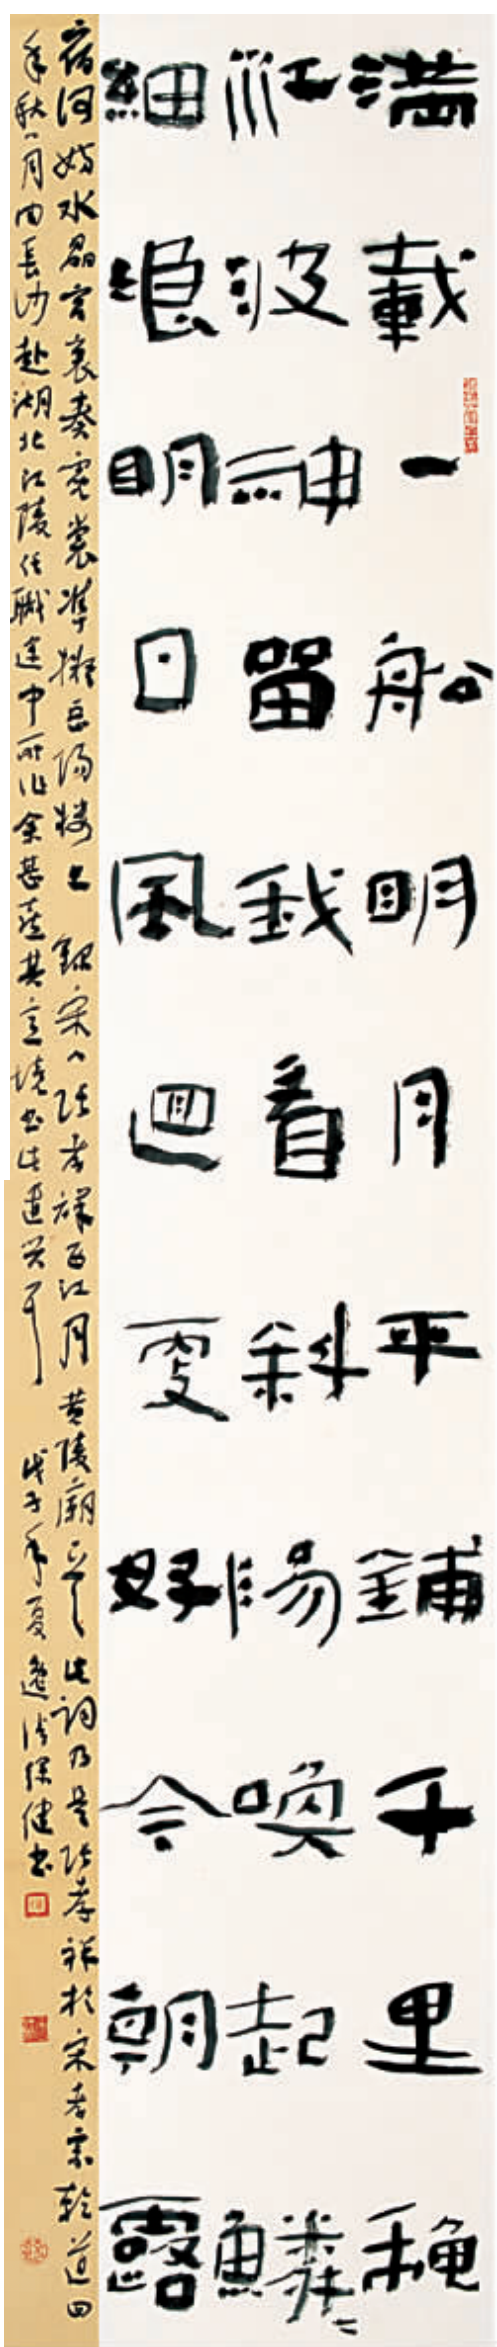 滿載一船明月平鋪千里穐
江波神留我看斜陽喚起鱗〻
細浪明日風迴更好今朝露
宿何妨水晶宮裏奏霓裳準擬岳陽樓上 錄宋人張孝祥西江月 黃陵廟 此詞乃是張孝祥於宋孝宗乾道四
年秋八月由長沙赴湖北江陵任職途中所作余甚喜其意境書此遣興耳 戊子年夏 保健書